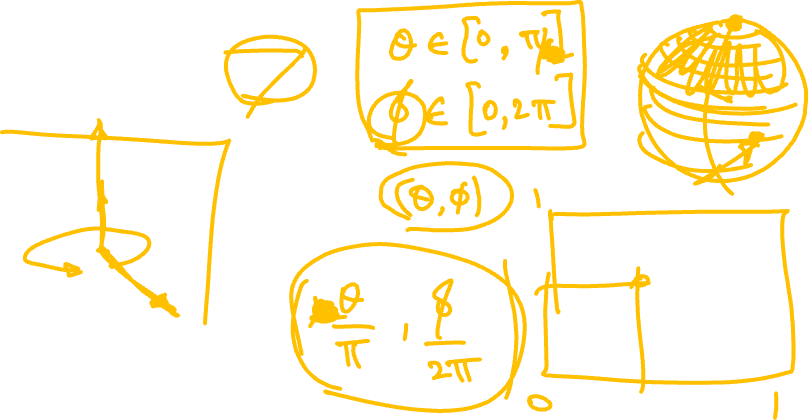 θ ∈ [0, π]
ϕ ∈ [0, 2π]
(θ, ϕ)
1
θ/π , ϕ/2π
0 1